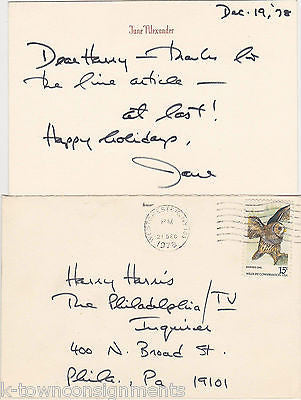 Dec. 19, '78
Jane Alexander
Dear Harry — Thanks for
the fine article —
at last!
Happy holidays,
Jane
PM
21 DEC
1978
15c
WILDLIFE CONSERVATION USA
Harry Harris
The Philadelphia/TV
Inquirer
400 N. Broad St.
Phila., Pa 19101
k-townconsignments